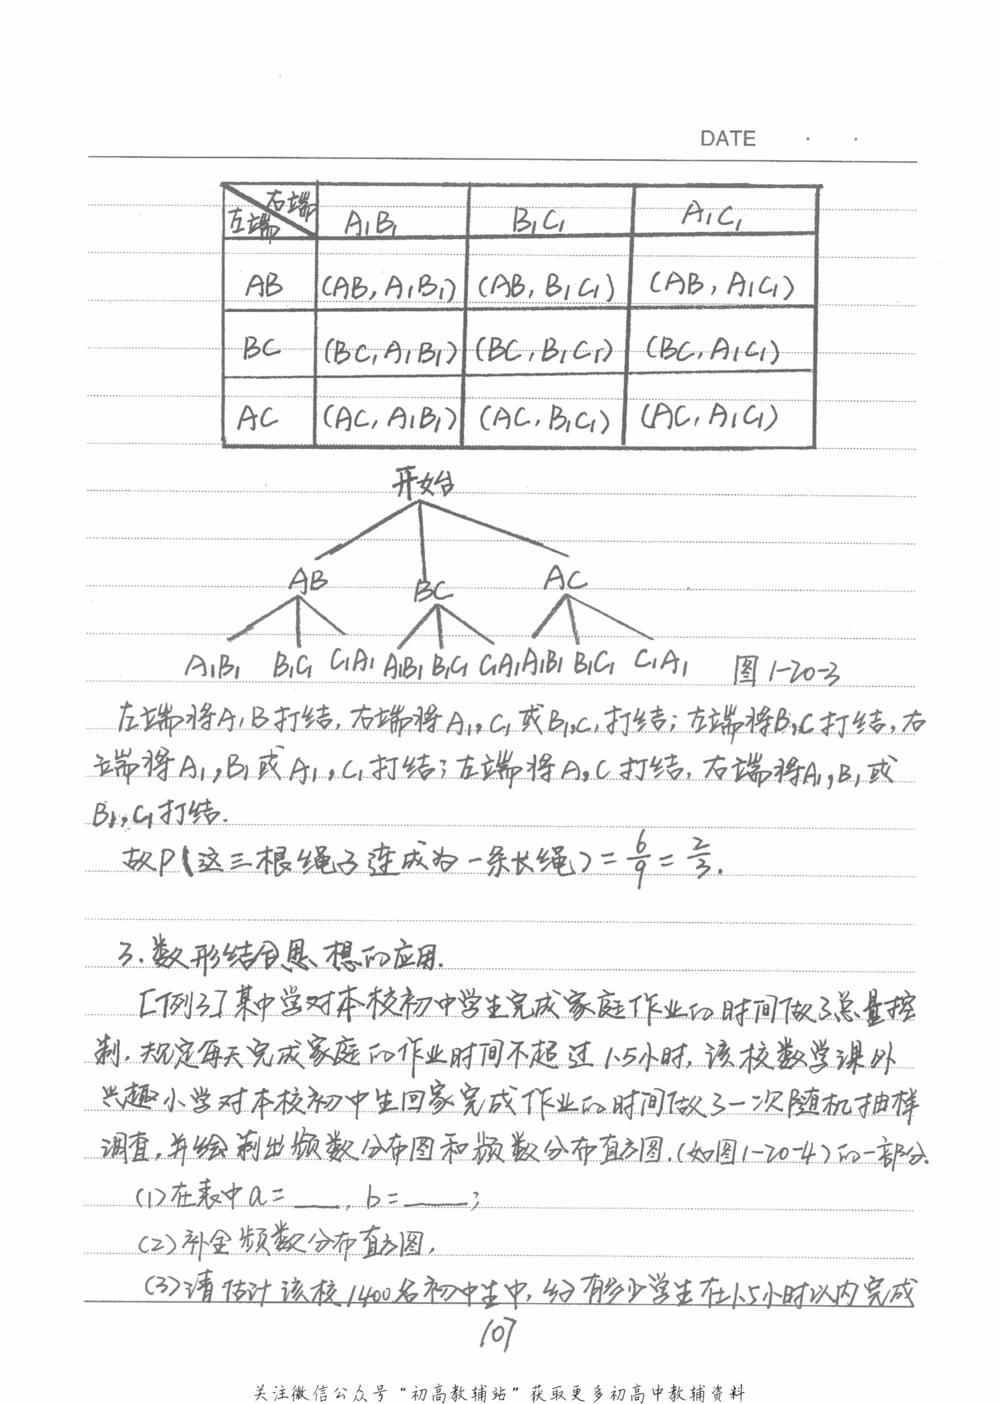 DATE · ·
右端
左端 A₁B₁ B₁C₁ A₁C₁
AB (AB, A₁B₁) (AB, B₁C₁) (AB, A₁C₁)
BC (BC, A₁B₁) (BC, B₁C₁) (BC, A₁C₁)
AC (AC, A₁B₁) (AC, B₁C₁) (AC, A₁C₁)
开始
AB BC AC
A₁B₁ B₁C₁ C₁A₁ A₁B₁ B₁C₁ C₁A₁ A₁B₁ B₁C₁ C₁A₁ 图1-20-3
左端将A,B打结,右端将A₁,C₁或B₁,C₁打结;左端将B,C打结,右
端将A₁,B₁或A₁,C₁打结;左端将A,C打结,右端将A₁,B₁或
B₁,C₁打结.
故P(这三根绳子连成为一条长绳)=6/9=2/3.
3.数形结合思想的应用.
[例3]某中学对本校初中学生完成家庭作业的时间做了总量控
制,规定每天完成家庭的作业时间不超过1.5小时,该校数学课外
兴趣小学对本校初中生回家完成作业的时间做了一次随机抽样
调查,并绘制出频数分布图和频数分布直方图.(如图1-20-4)的一部分.
(1)在表中a=___,b=____;
(2)补全频数分布直方图.
(3)请估计该校1400名初中生中,约有多少学生在1.5小时以内完成
107
关注微信公众号“初高教辅站”获取更多初高中教辅资料